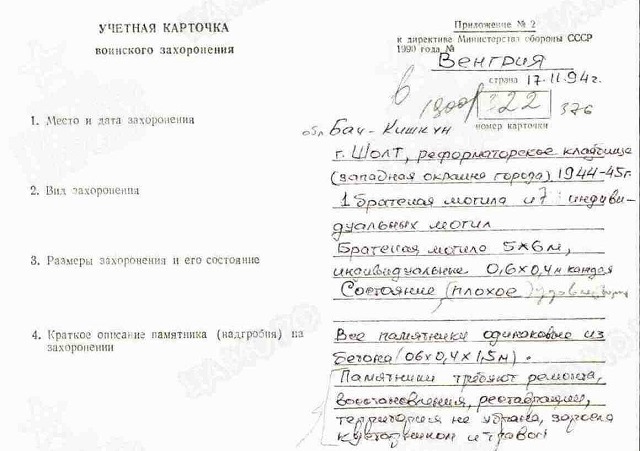 УЧЕТНАЯ КАРТОЧКА
воинского захоронения
Приложение № 2
к директиве Министерства обороны СССР
1990 года №
Венгрия
страна 17.11.94г.
322 376
номер карточки
1. Место и дата захоронения
обл Бач-Кишкун
г. Шолт, реформаторское кладбище
(западная окраина города), 1944-45г.
2. Вид захоронения
1 братская могила и 7 индиви-
дуальных могил
3. Размеры захоронения и его состояние
Братская могила 5х6м,
индивидуальные 0,6х0,4м каждая
Состояние (плохое)
4. Краткое описание памятника (надгробия) на
захоронении
Все памятники одинаковые из
бетона (06х0,4х1,5м).
Памятники требуют ремонта,
восстановления, реставрации,
территория не убрана, заросла
кустарником и травой